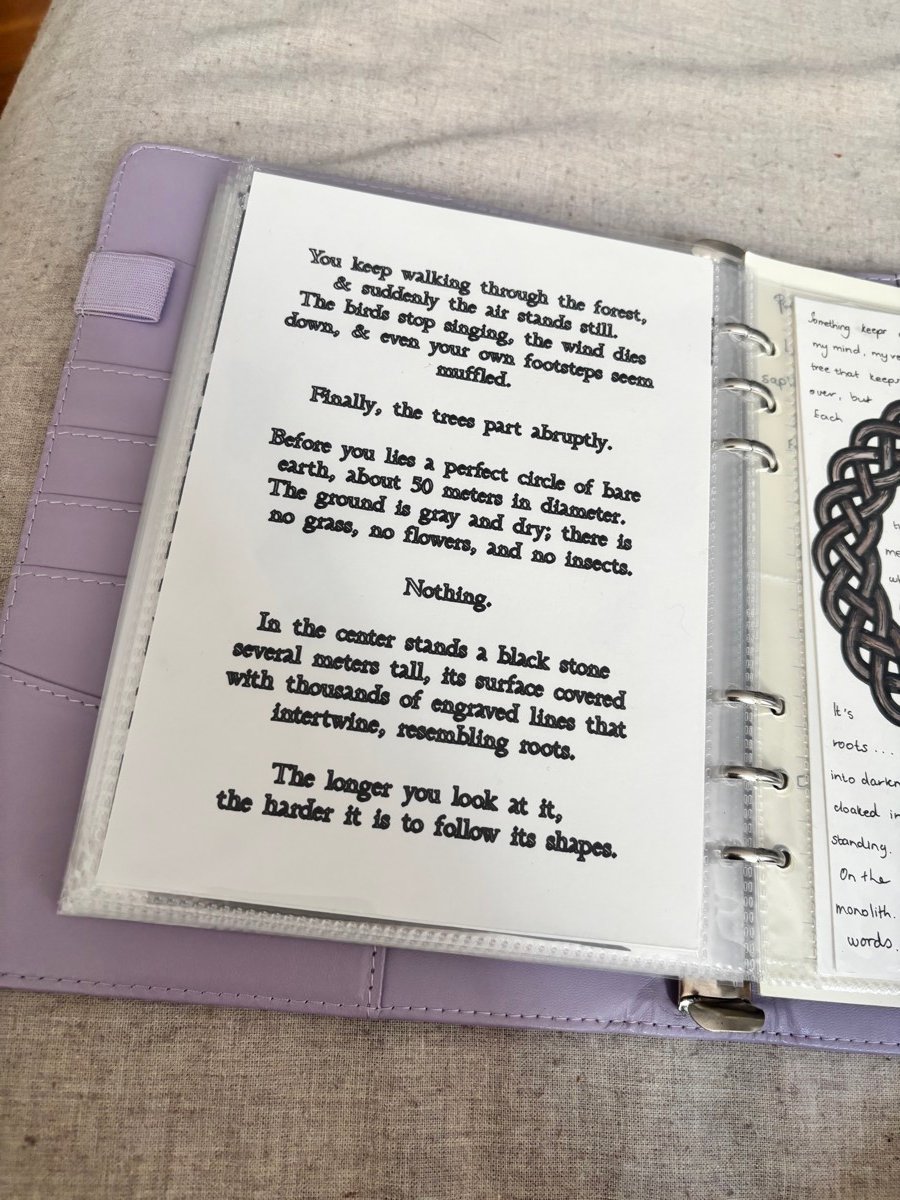 You keep walking through the forest,
& suddenly the air stands still.
The birds stop singing, the wind dies
down, & even your own footsteps seem
muffled.
Finally, the trees part abruptly.
Before you lies a perfect circle of bare
earth, about 50 meters in diameter.
The ground is gray and dry; there is
no grass, no flowers, and no insects.
Nothing.
In the center stands a black stone
several meters tall, its surface covered
with thousands of engraved lines that
intertwine, resembling roots.
The longer you look at it,
the harder it is to follow its shapes.
Something keeps
my mind. my
tree that keeps
over, but
Each
It's
roots...
into
cloaked
standing.
On the
monolith.
words.